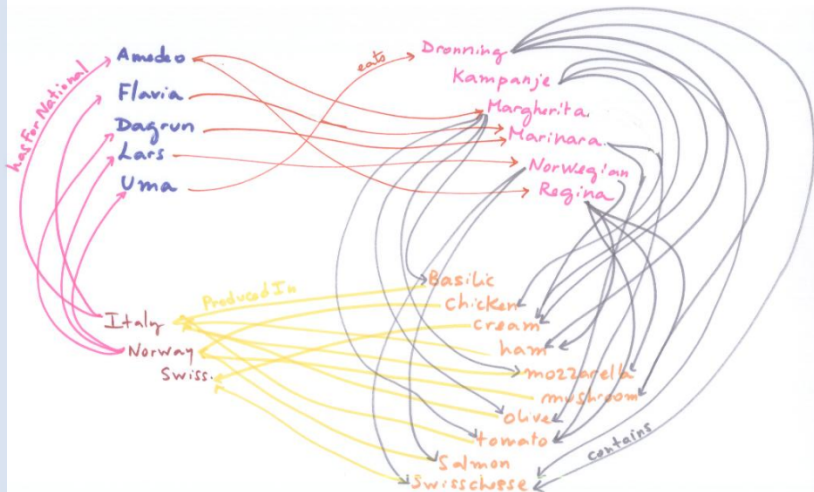 hasForNational
Amedeo
Flavia
Dagrun
Lars
Uma
eats
Dronning
Kampanje
Margherita.
Marinara.
Norwegian
Regina
Italy
Norway
Swiss.
ProducedIn
Basilic
chicken
cream
ham
mozzarella
mushroom
olive
tomato
Salmon
Swisscheese
contains